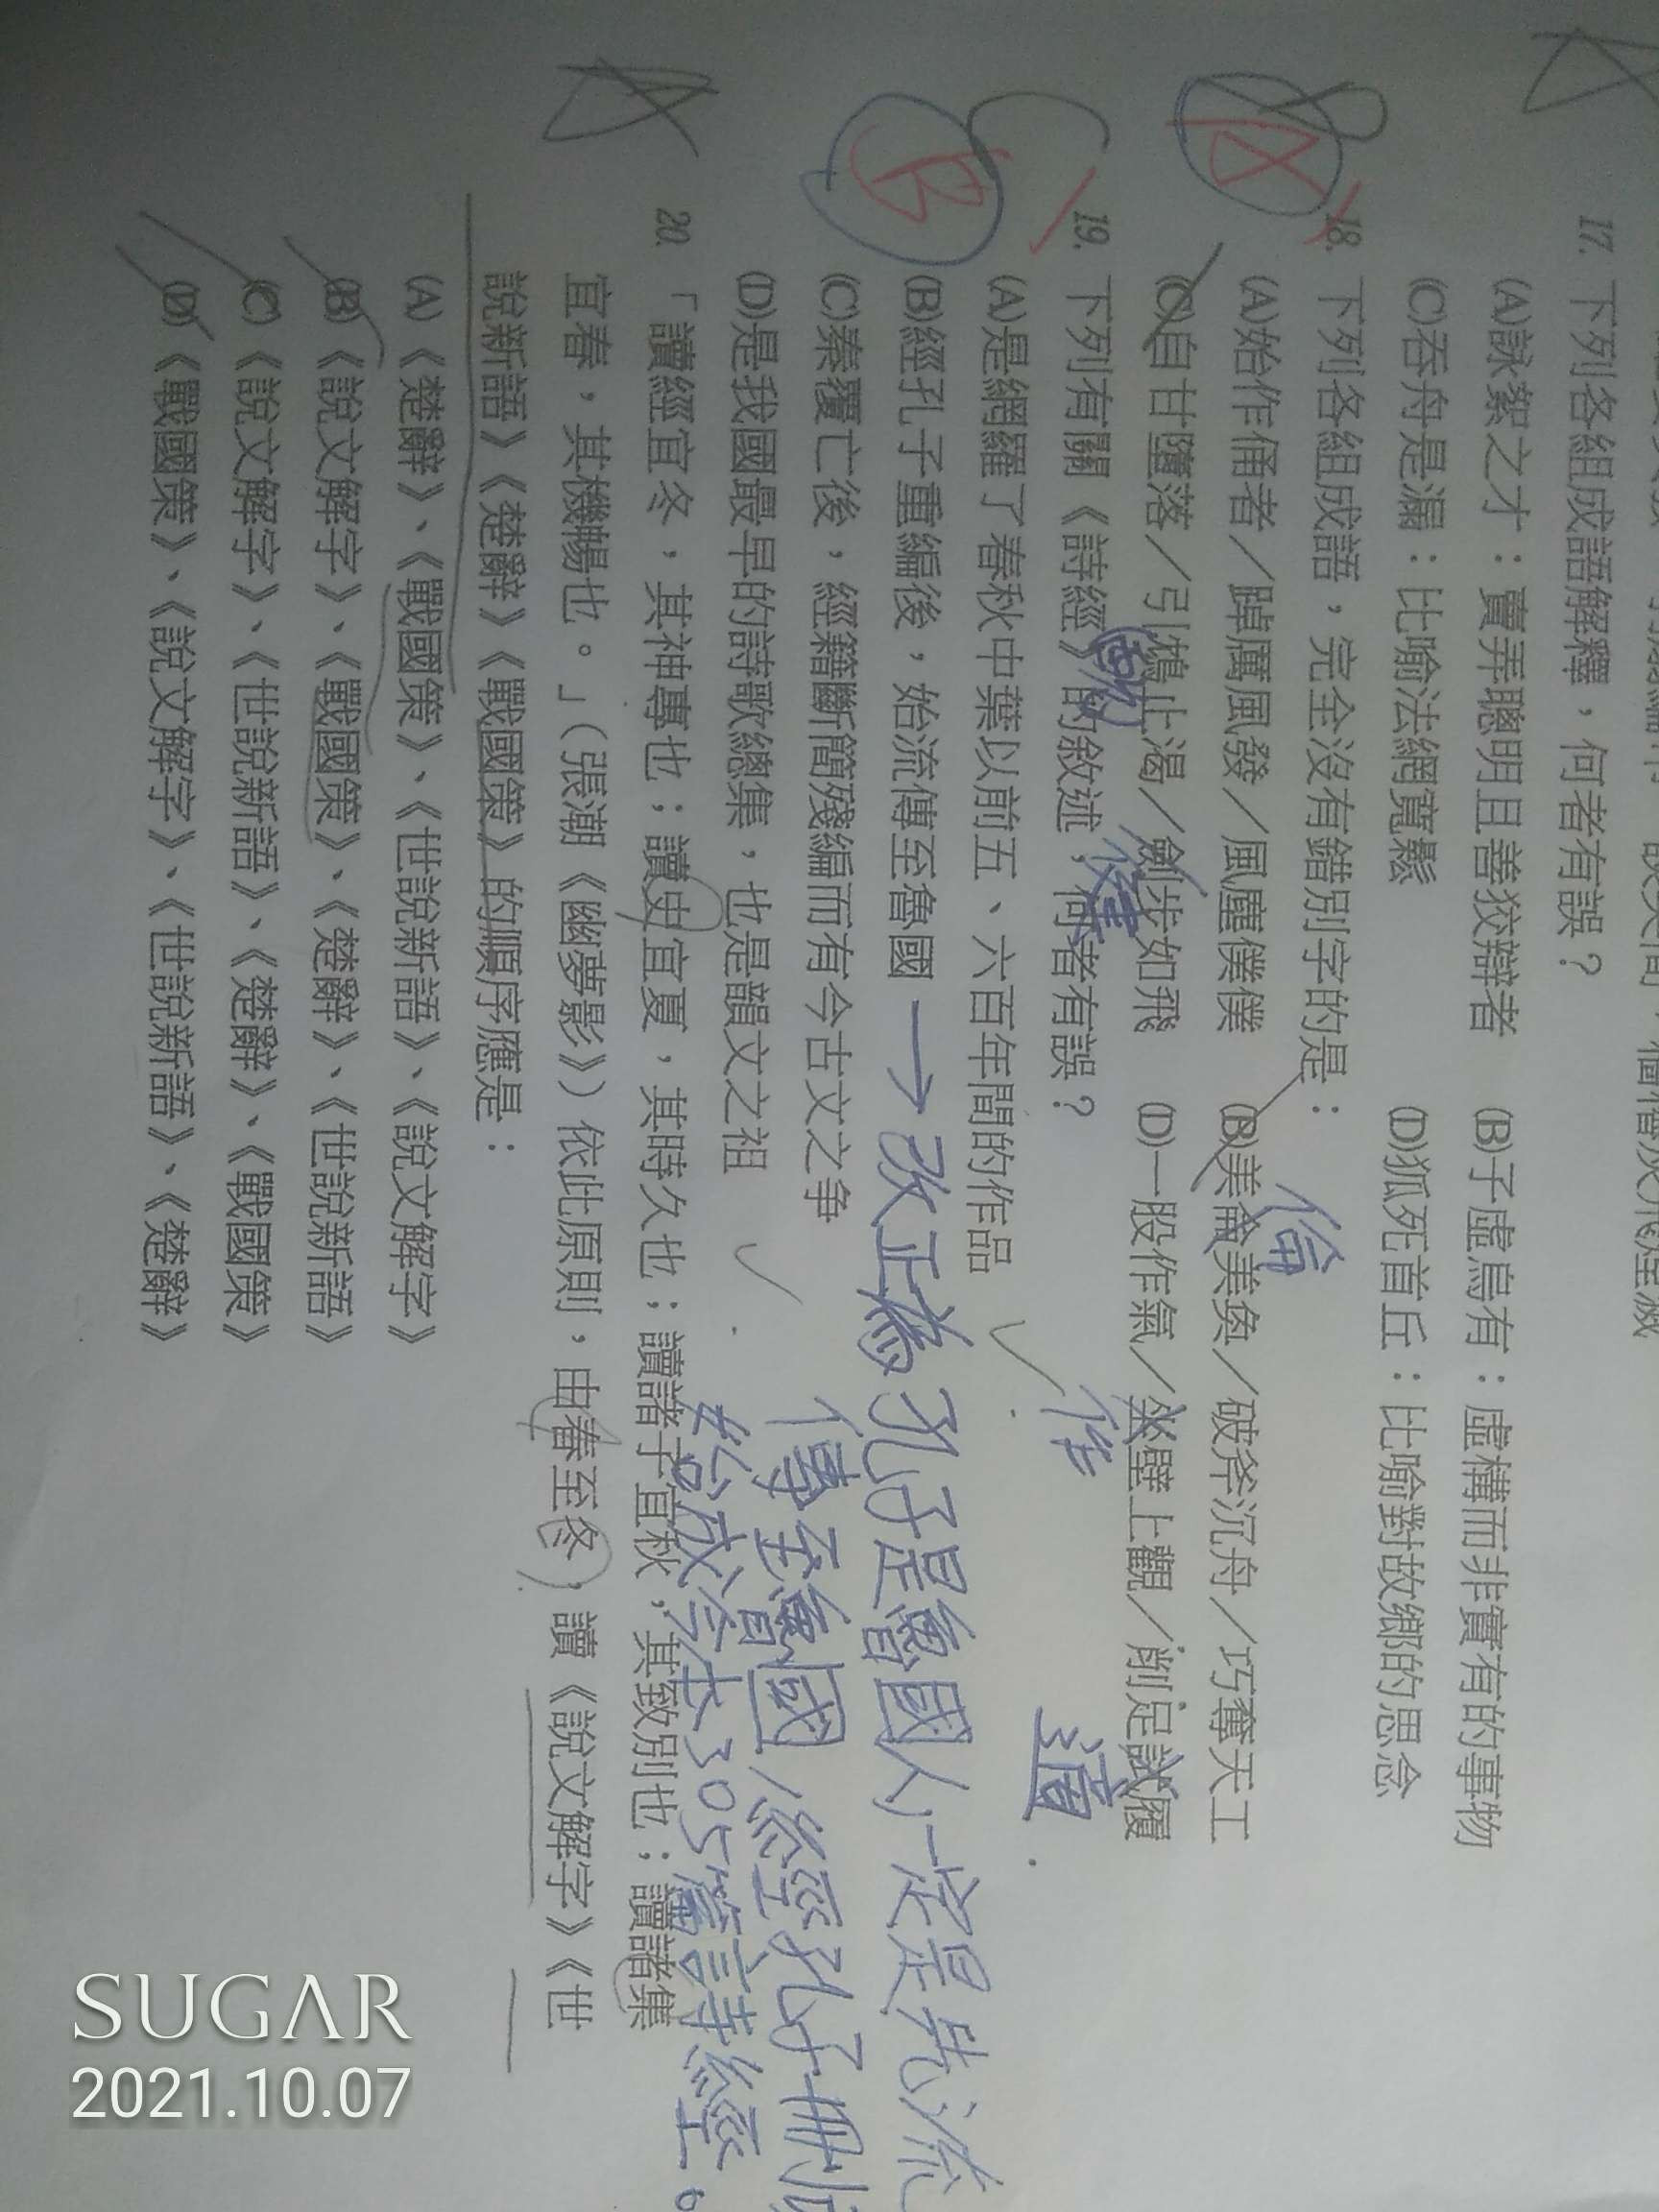 17. 下列各組成語解釋，何者有誤？
(A)詠絮之才：賣弄聰明且善狡辯者 (B)子虛烏有：虛構而非實有的事物
(C)吞舟是漏：比喻法網寬鬆 (D)狐死首丘：比喻對故鄉的思念
A
18. 下列各組成語，完全沒有錯別字的是：
A
倫
(A)始作俑者／踔厲風發／風塵僕僕 (B)美侖美奐／破斧沉舟／巧奪天工
(C)自甘墮落／引鴆止渴／劍步如飛 (D)一股作氣／坐壁上觀／削足試履
健
作
適
19. 下列有關《詩經》的敘述，何者有誤？
C
B
(A)是網羅了春秋中葉以前五、六百年間的作品
(B)經孔子重編後，始流傳至魯國
→改正為孔子是魯國人一定是先流
傳至魯國，經孔子刪
始成今本305篇詩經。
(C)秦覆亡後，經籍斷簡殘編而有今古文之爭
(D)是我國最早的詩歌總集，也是韻文之祖
20. 「讀經宜冬，其神專也；讀史宜夏，其時久也；讀諸子宜秋，其致別也；讀諸集
A
宜春，其機暢也。」（張潮《幽夢影》）依此原則，由春至冬，讀《說文解字》《世
說新語》《楚辭》《戰國策》的順序應是：
(A)《楚辭》、《戰國策》、《世說新語》、《說文解字》
(B)《說文解字》、《戰國策》、《楚辭》、《世說新語》
(C)《說文解字》、《世說新語》、《楚辭》、《戰國策》
(D)《戰國策》、《說文解字》、《世說新語》、《楚辭》
SUGAR
2021.10.07